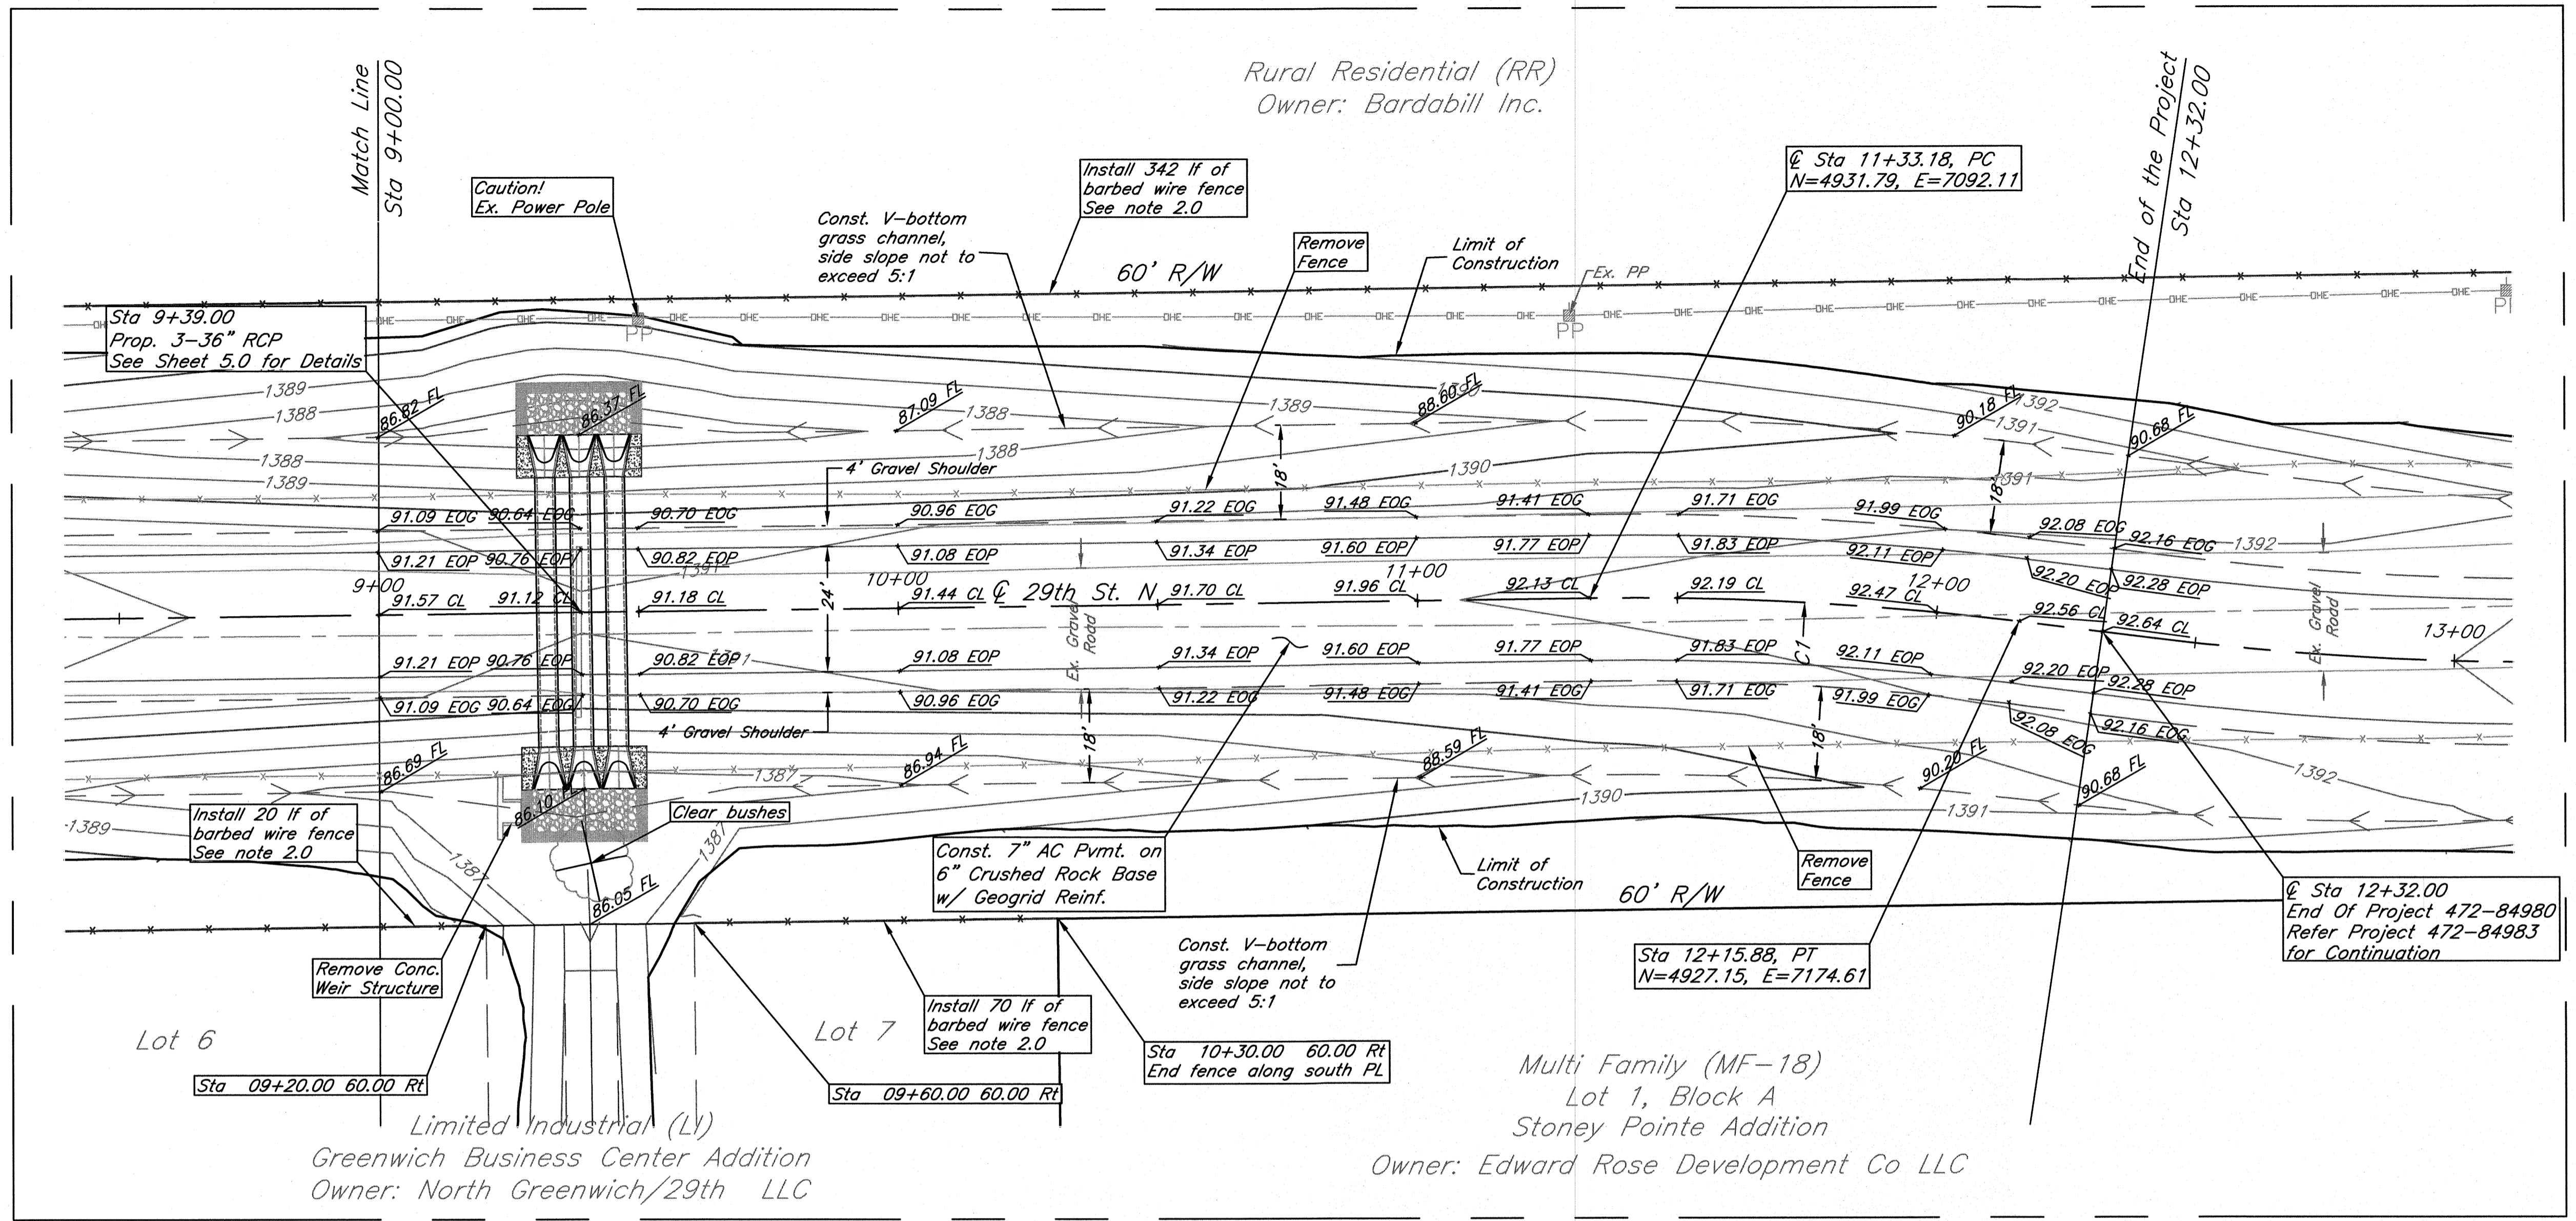 Rural Residential (RR)
Owner: Bardabill Inc.
Match Line
Sta 9+00.00
End of the Project
Sta 12+32.00
Caution!
Ex. Power Pole
Install 342 lf of
barbed wire fence
See note 2.0
℄ Sta 11+33.18, PC
N=4931.79, E=7092.11
Const. V-bottom
grass channel,
side slope not to
exceed 5:1
Remove
Fence
Limit of
Construction
60' R/W
Ex. PP
OHE OHE OHE OHE OHE OHE OHE OHE OHE OHE OHE OHE OHE OHE OHE OHE
PP
PP
Sta 9+39.00
Prop. 3-36" RCP
See Sheet 5.0 for Details
1389
1388
86.82 FL
86.37 FL
87.09 FL
1388
1389
88.60 FL
90.18 FL
1392
1391
90.68 FL
1388
1389
1388
1390
1391
4' Gravel Shoulder
18'
18'
91.09 EOG 90.64 EOG 90.70 EOG 90.96 EOG 91.22 EOG 91.48 EOG 91.41 EOG 91.71 EOG 91.99 EOG 92.08 EOG 92.16 EOG
1392
91.21 EOP 90.76 EOP 90.82 EOP 91.08 EOP 91.34 EOP 91.60 EOP 91.77 EOP 91.83 EOP 92.11 EOP 92.20 EOP 92.28 EOP
1391
9+00 10+00 11+00 12+00 13+00
91.57 CL 91.12 CL 91.18 CL 91.44 CL ℄ 29th St. N. 91.70 CL 91.96 CL 92.13 CL 92.19 CL 92.47 CL 92.56 CL 92.64 CL
24'
Ex. Gravel
Road
C1
Ex. Gravel
Road
91.21 EOP 90.76 EOP 90.82 EOP 91.08 EOP 91.34 EOP 91.60 EOP 91.77 EOP 91.83 EOP 92.11 EOP 92.20 EOP 92.28 EOP
1391
91.09 EOG 90.64 EOG 90.70 EOG 90.96 EOG 91.22 EOG 91.48 EOG 91.41 EOG 91.71 EOG 91.99 EOG 92.08 EOG 92.16 EOG
4' Gravel Shoulder
18'
18'
86.69 FL
1387
86.94 FL
88.59 FL
90.20 FL
90.68 FL
1392
86.10 FL
1390
1391
1389
Install 20 lf of
barbed wire fence
See note 2.0
Clear bushes
1387
1387
86.05 FL
Const. 7" AC Pvmt. on
6" Crushed Rock Base
w/ Geogrid Reinf.
Limit of
Construction
Remove
Fence
60' R/W
℄ Sta 12+32.00
End Of Project 472-84980
Refer Project 472-84983
for Continuation
Remove Conc.
Weir Structure
Const. V-bottom
grass channel,
side slope not to
exceed 5:1
Sta 12+15.88, PT
N=4927.15, E=7174.61
Lot 6
Lot 7
Install 70 lf of
barbed wire fence
See note 2.0
Sta 10+30.00 60.00 Rt
End fence along south PL
Sta 09+20.00 60.00 Rt
Sta 09+60.00 60.00 Rt
Limited Industrial (LI)
Greenwich Business Center Addition
Owner: North Greenwich/29th LLC
Multi Family (MF-18)
Lot 1, Block A
Stoney Pointe Addition
Owner: Edward Rose Development Co LLC